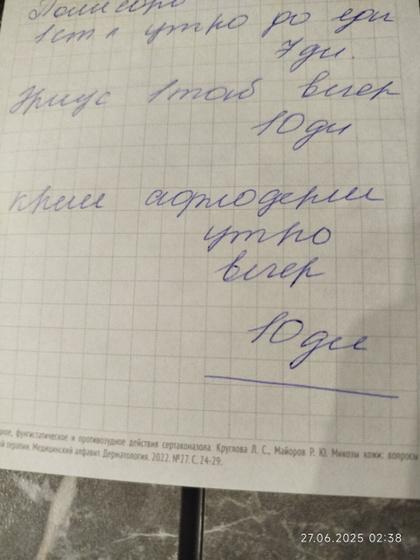 Полисорб
1 ст л утро до еды
7 дн.
Эриус 1 таб вечер
10 дн
крем афлодерм
утро
вечер
10 дн
ное, фунгистатическое и противозудное действия сертаконазола. Круглова Л. С., Майоров Р. Ю. Микозы кожи: вопросы
й терапии. Медицинский алфавит. Дерматология. 2022. №27. С. 24-29.
27.06.2025 02:38